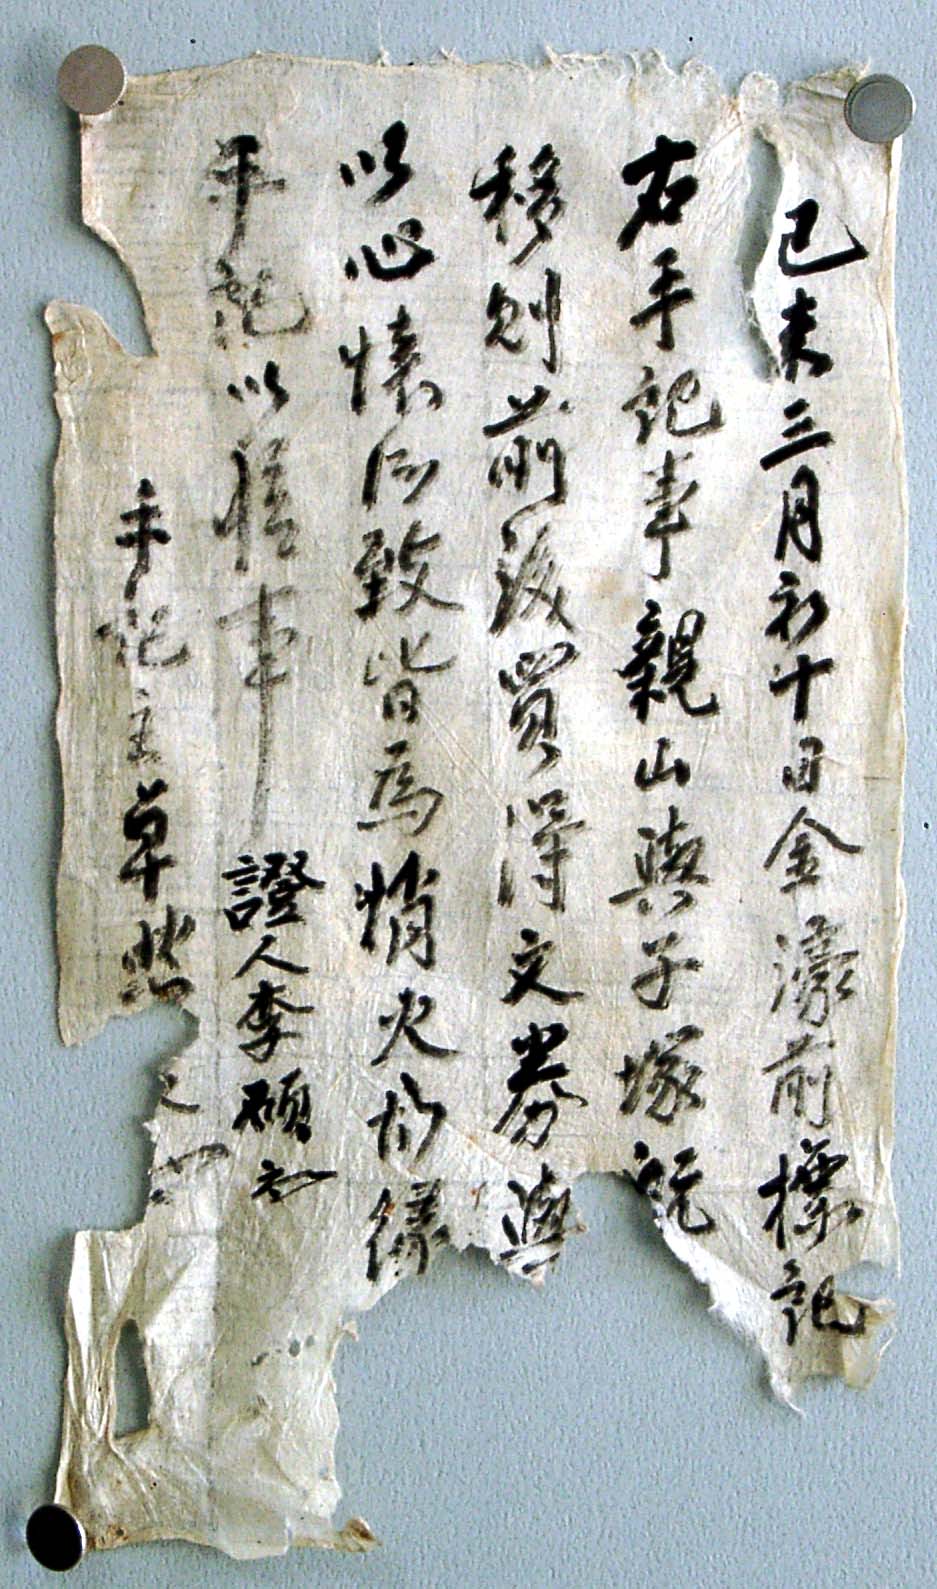 己未三月初十日金濠前標記
右手記事親山與子塚既
移則前後買得文券與
以心懷所致皆爲燒火故緣
手記以憑事
證人李碩
手記主草